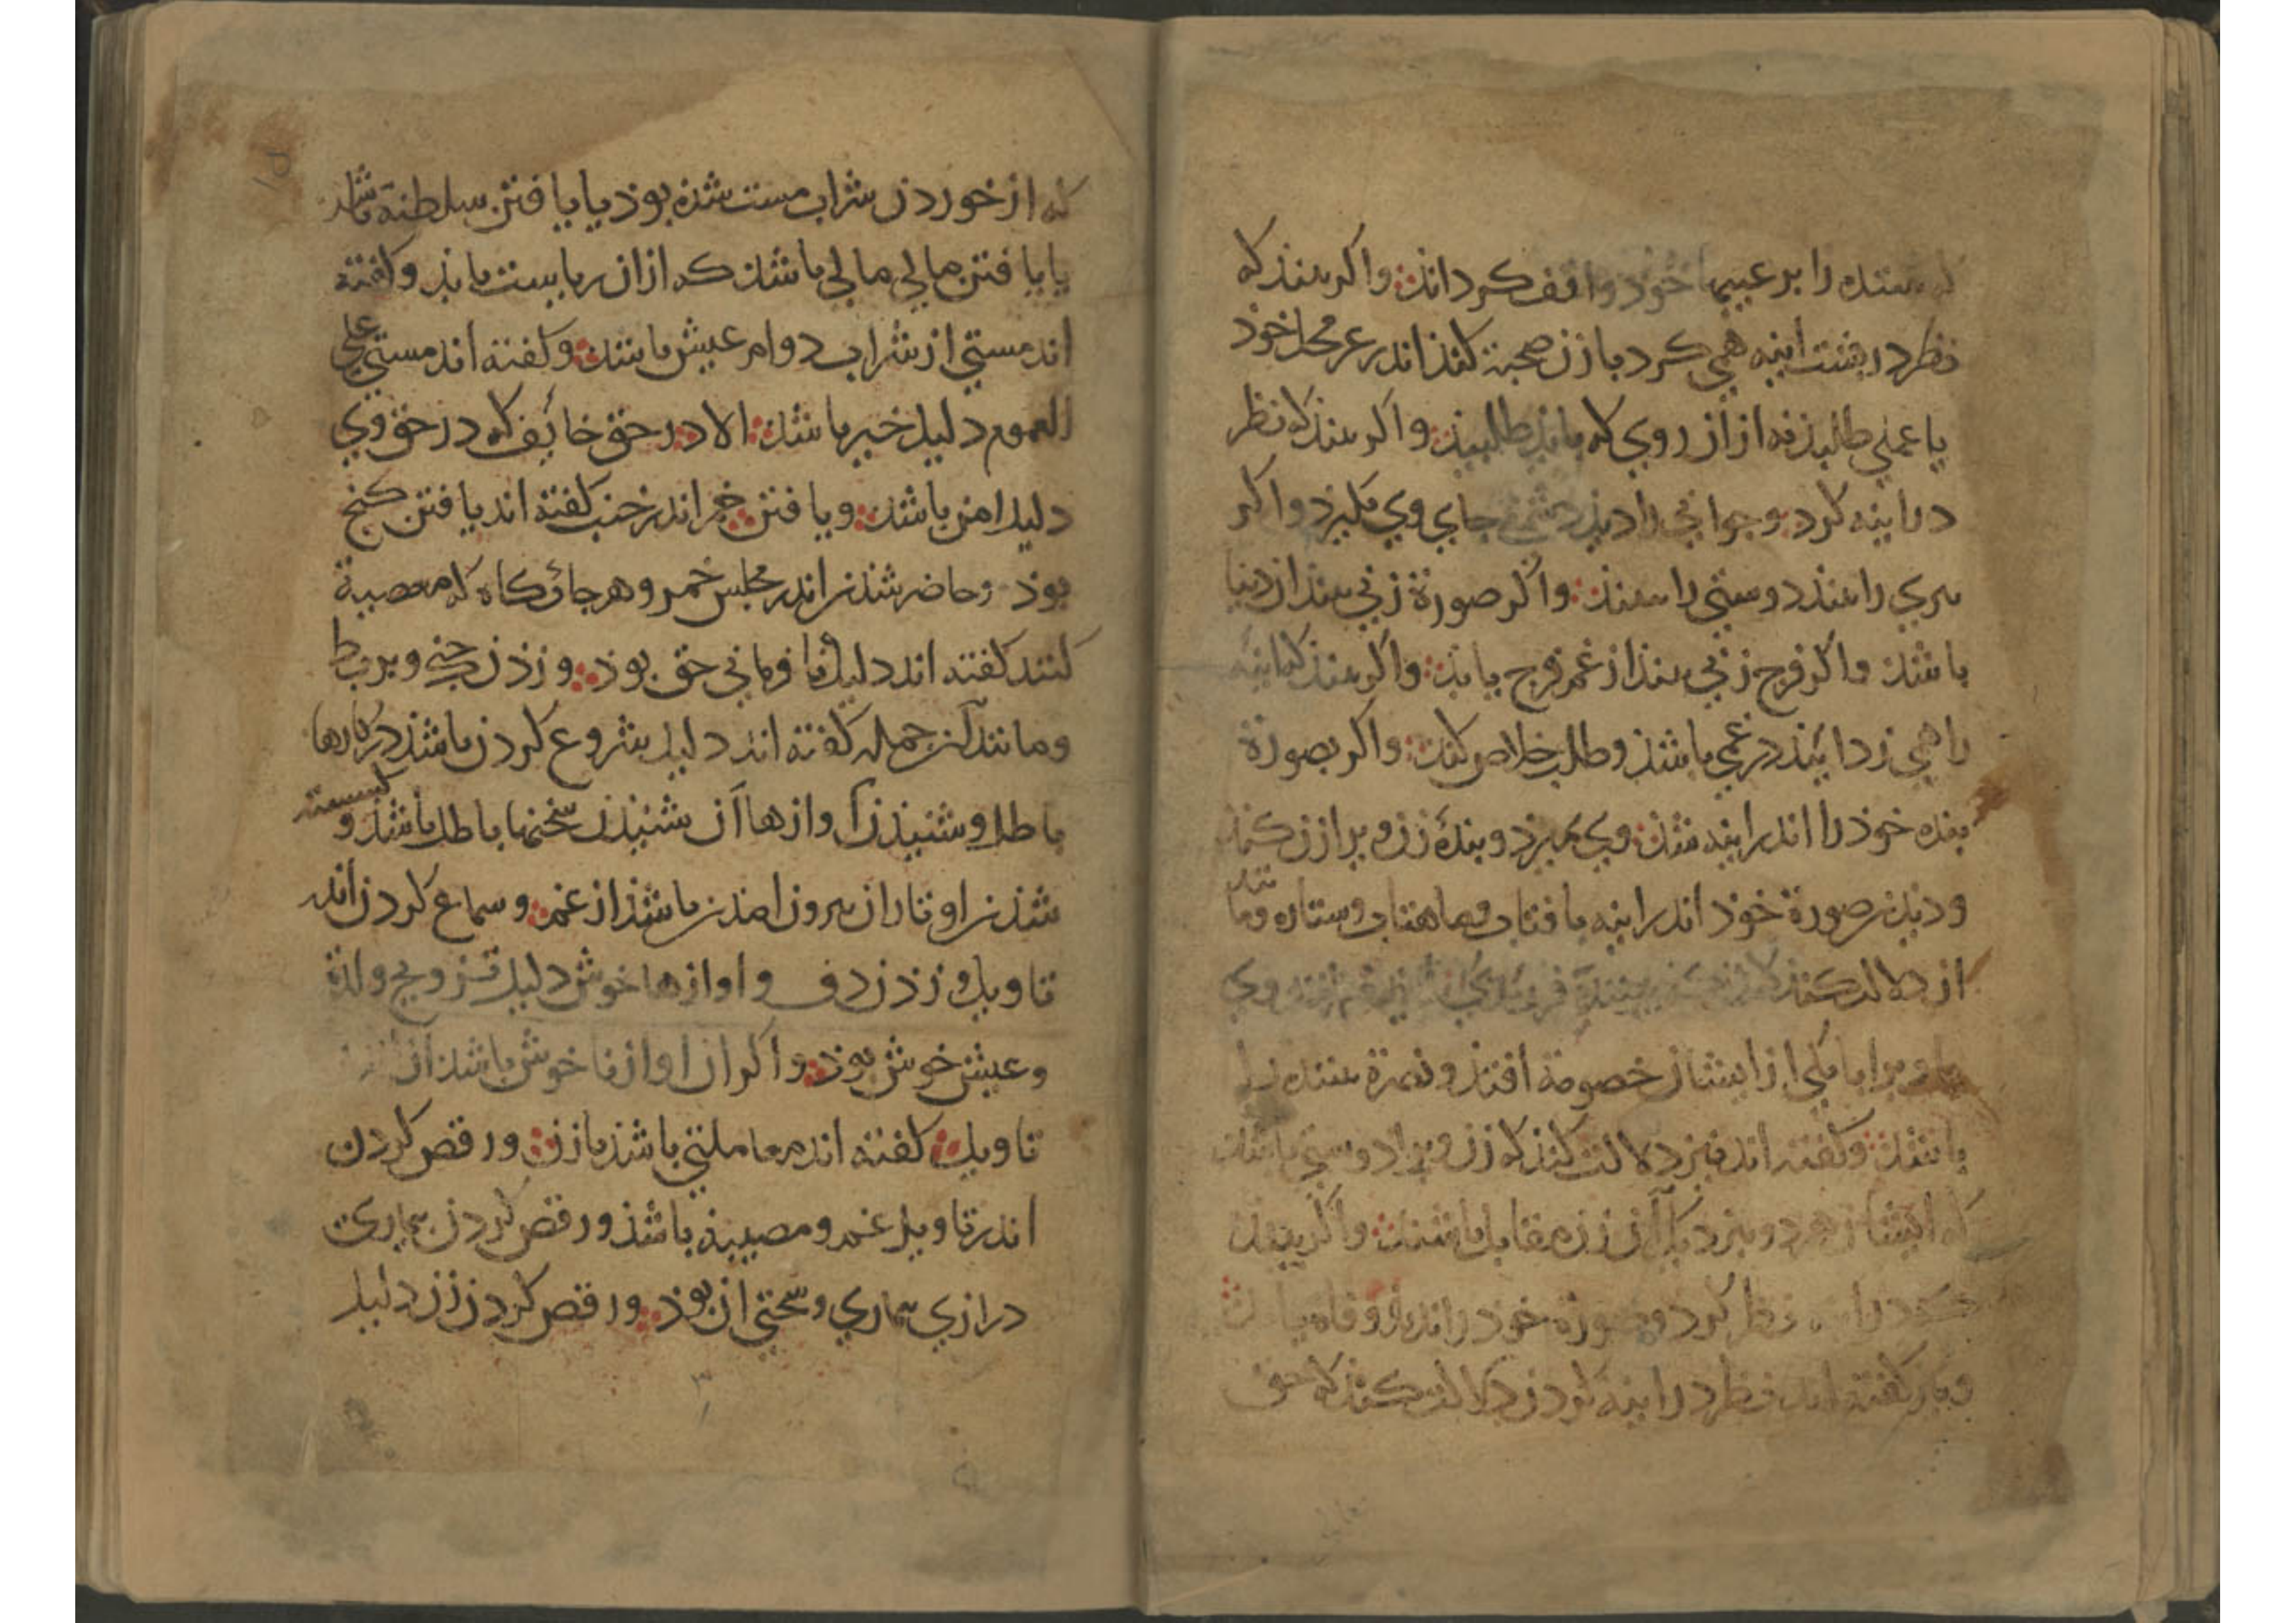 بیننده را بر عیبها خوذ واقف کرداند واکر بیند که
نظر در بشت اینه همی کرد با زن صحبة کند اندر غیر محل خوذ
یا عملی طلبذ نه از آن روی که بایذ طلبیذ واکر بیند که نظر
در اینه کرد و جوانی را دیذ دشمنی جای وی بکیرد واکر
بیری را بیند دوستی را بیند واکر صورة زنی بیند از دنیا
باشذ واکر فرج زنی بیند از غم فرج یابذ واکر بیند که اینه
را همی زدایند در غمی باشذ وطلب خلاص کند واکر بصورة
بنده خوذ را اندر اینه
ودیذن صورة خوذ اندر اینه یا افتاب وماهتاب وستاره
از دلالت کند
از ایشان خصومة افتذ ونصرة بیننده را
باشذ وکفته اند نیز دلالت کند که زن ویرا دوستی باشد
که ایشان هر دو بنزدیک آن زن مقابل باشند واکر بیند
نظر کرد وصورة خوذ را اندرو
وباز کفته اند نظر در اینه کردن دلالت کند که
که از خوردن شراب مست شذه بوذ یا یافتن سلطنة باشد
یا یافتن مالی مالی باشذ که از ان ریاست یابذ وکفته
اند مستی از شراب دوام عیش باشذ وکفته اند مستی علی
العموم دلیل خیر باشذ الا در حق خائف که در حق وی
دلیل امن باشذ ویافتن خمر اندر خنب کفته اند یافتن کنج
بوذ وحاضر شذن اندر مجلس خمر وهر جائکاه که معصیة
کنند کفته اند دلیل نا فرمانی حق بوذ وزذن جنک وبربط
ومانند آن جمله کفته اند دلیل شروع کردن باشذ در کارها
باطل وشنیذن آوازها آن شنیذن سخنها باطل باشذ و کسسته
شذن اوتار ان بیرون امذن باشذ از غم وسماع کردن اندر
تاویل وزذن دف واوازها خوش دلیل تزویج ولذة
وعیش خوش بوذ واکر ان اواز نا خوش باشذ آن
تاویل کفته اند معاملتی باشذ با زن ورقص کردن
اندر تاویل غم ومصیبة باشذ ورقص کردن بیماری
درازی بیماری وسختی ان بوذ ورقص کردن زن دلیل